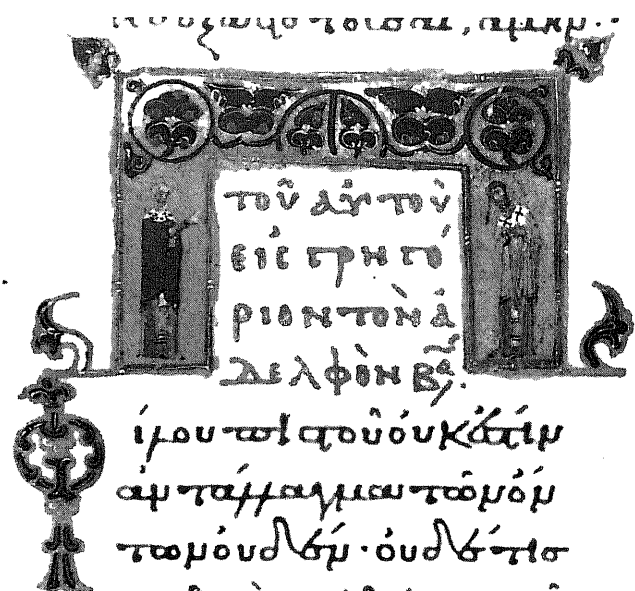 ἀμήν.
τοῦ αὐτοῦ
εἰς γρηγό
ριον τὸν ἀ
δελφὸν Βα
Φίλου πιστοῦ οὐκ ἔστιν
ἀντάλλαγμα τῶν ὄν
των οὐδέν· οὐδέ τισ